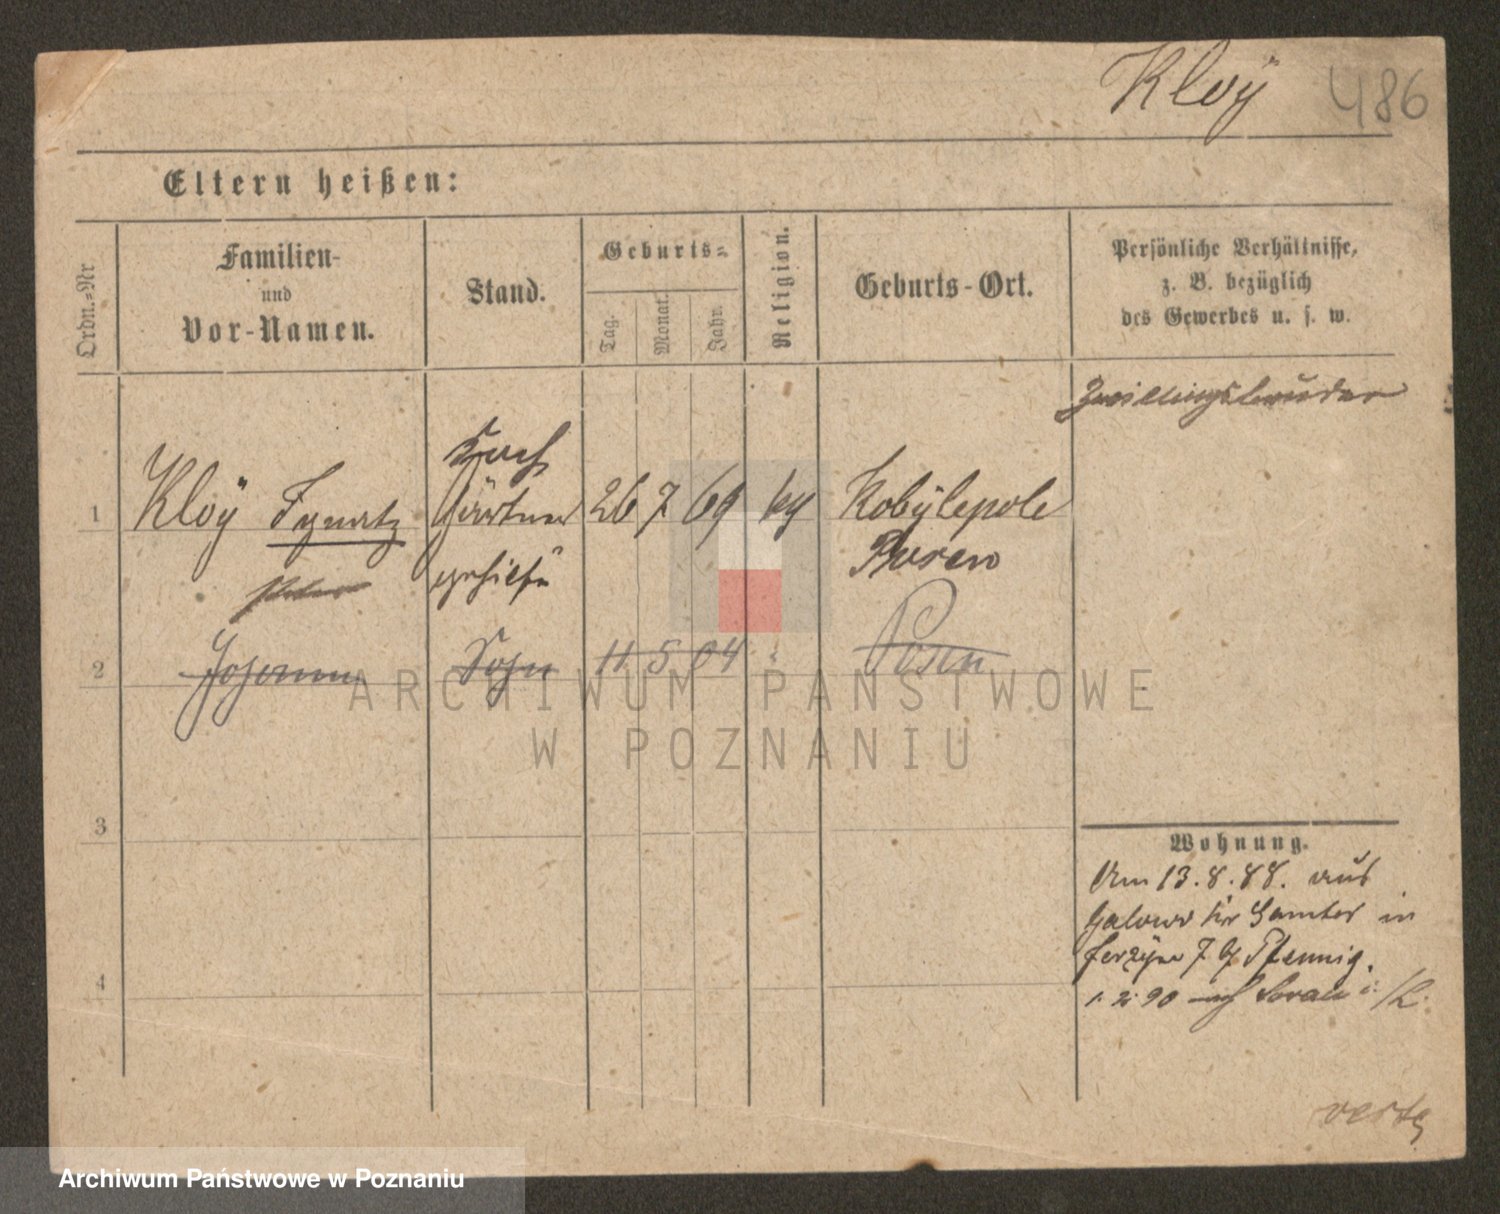 Kloÿ 486
Eltern heißen:
Ordn.=Nr
Familien-
und
Vor-Namen.
Stand.
Geburts=
Tag.
Monat.
Jahr.
Religion.
Geburts-Ort.
Persönliche Verhältnisse,
z. B. bezüglich
des Gewerbes u. s. w.
Zwillingsbruder
Koch
1 Kloÿ Ignatz Gärtner 26 7 69 kg Kobÿlepole
gehilfe Posen
2 Johann Sohn 11 5 04 Posen
3
4
Wohnung.
Am 13.8.88. aus
Galowo Kr Samter in
Jerzÿce 7 b/ Pfennig.
1. 2. 90 nach Sorau i./L.
verte
ARCHIWUM PAŃSTWOWE
W POZNANIU
Archiwum Państwowe w Poznaniu